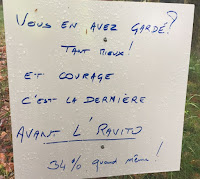 Vous en avez gardé?
Tant mieux!
Et courage
C'est la dernière
Avant l'Ravito
34% quand même!